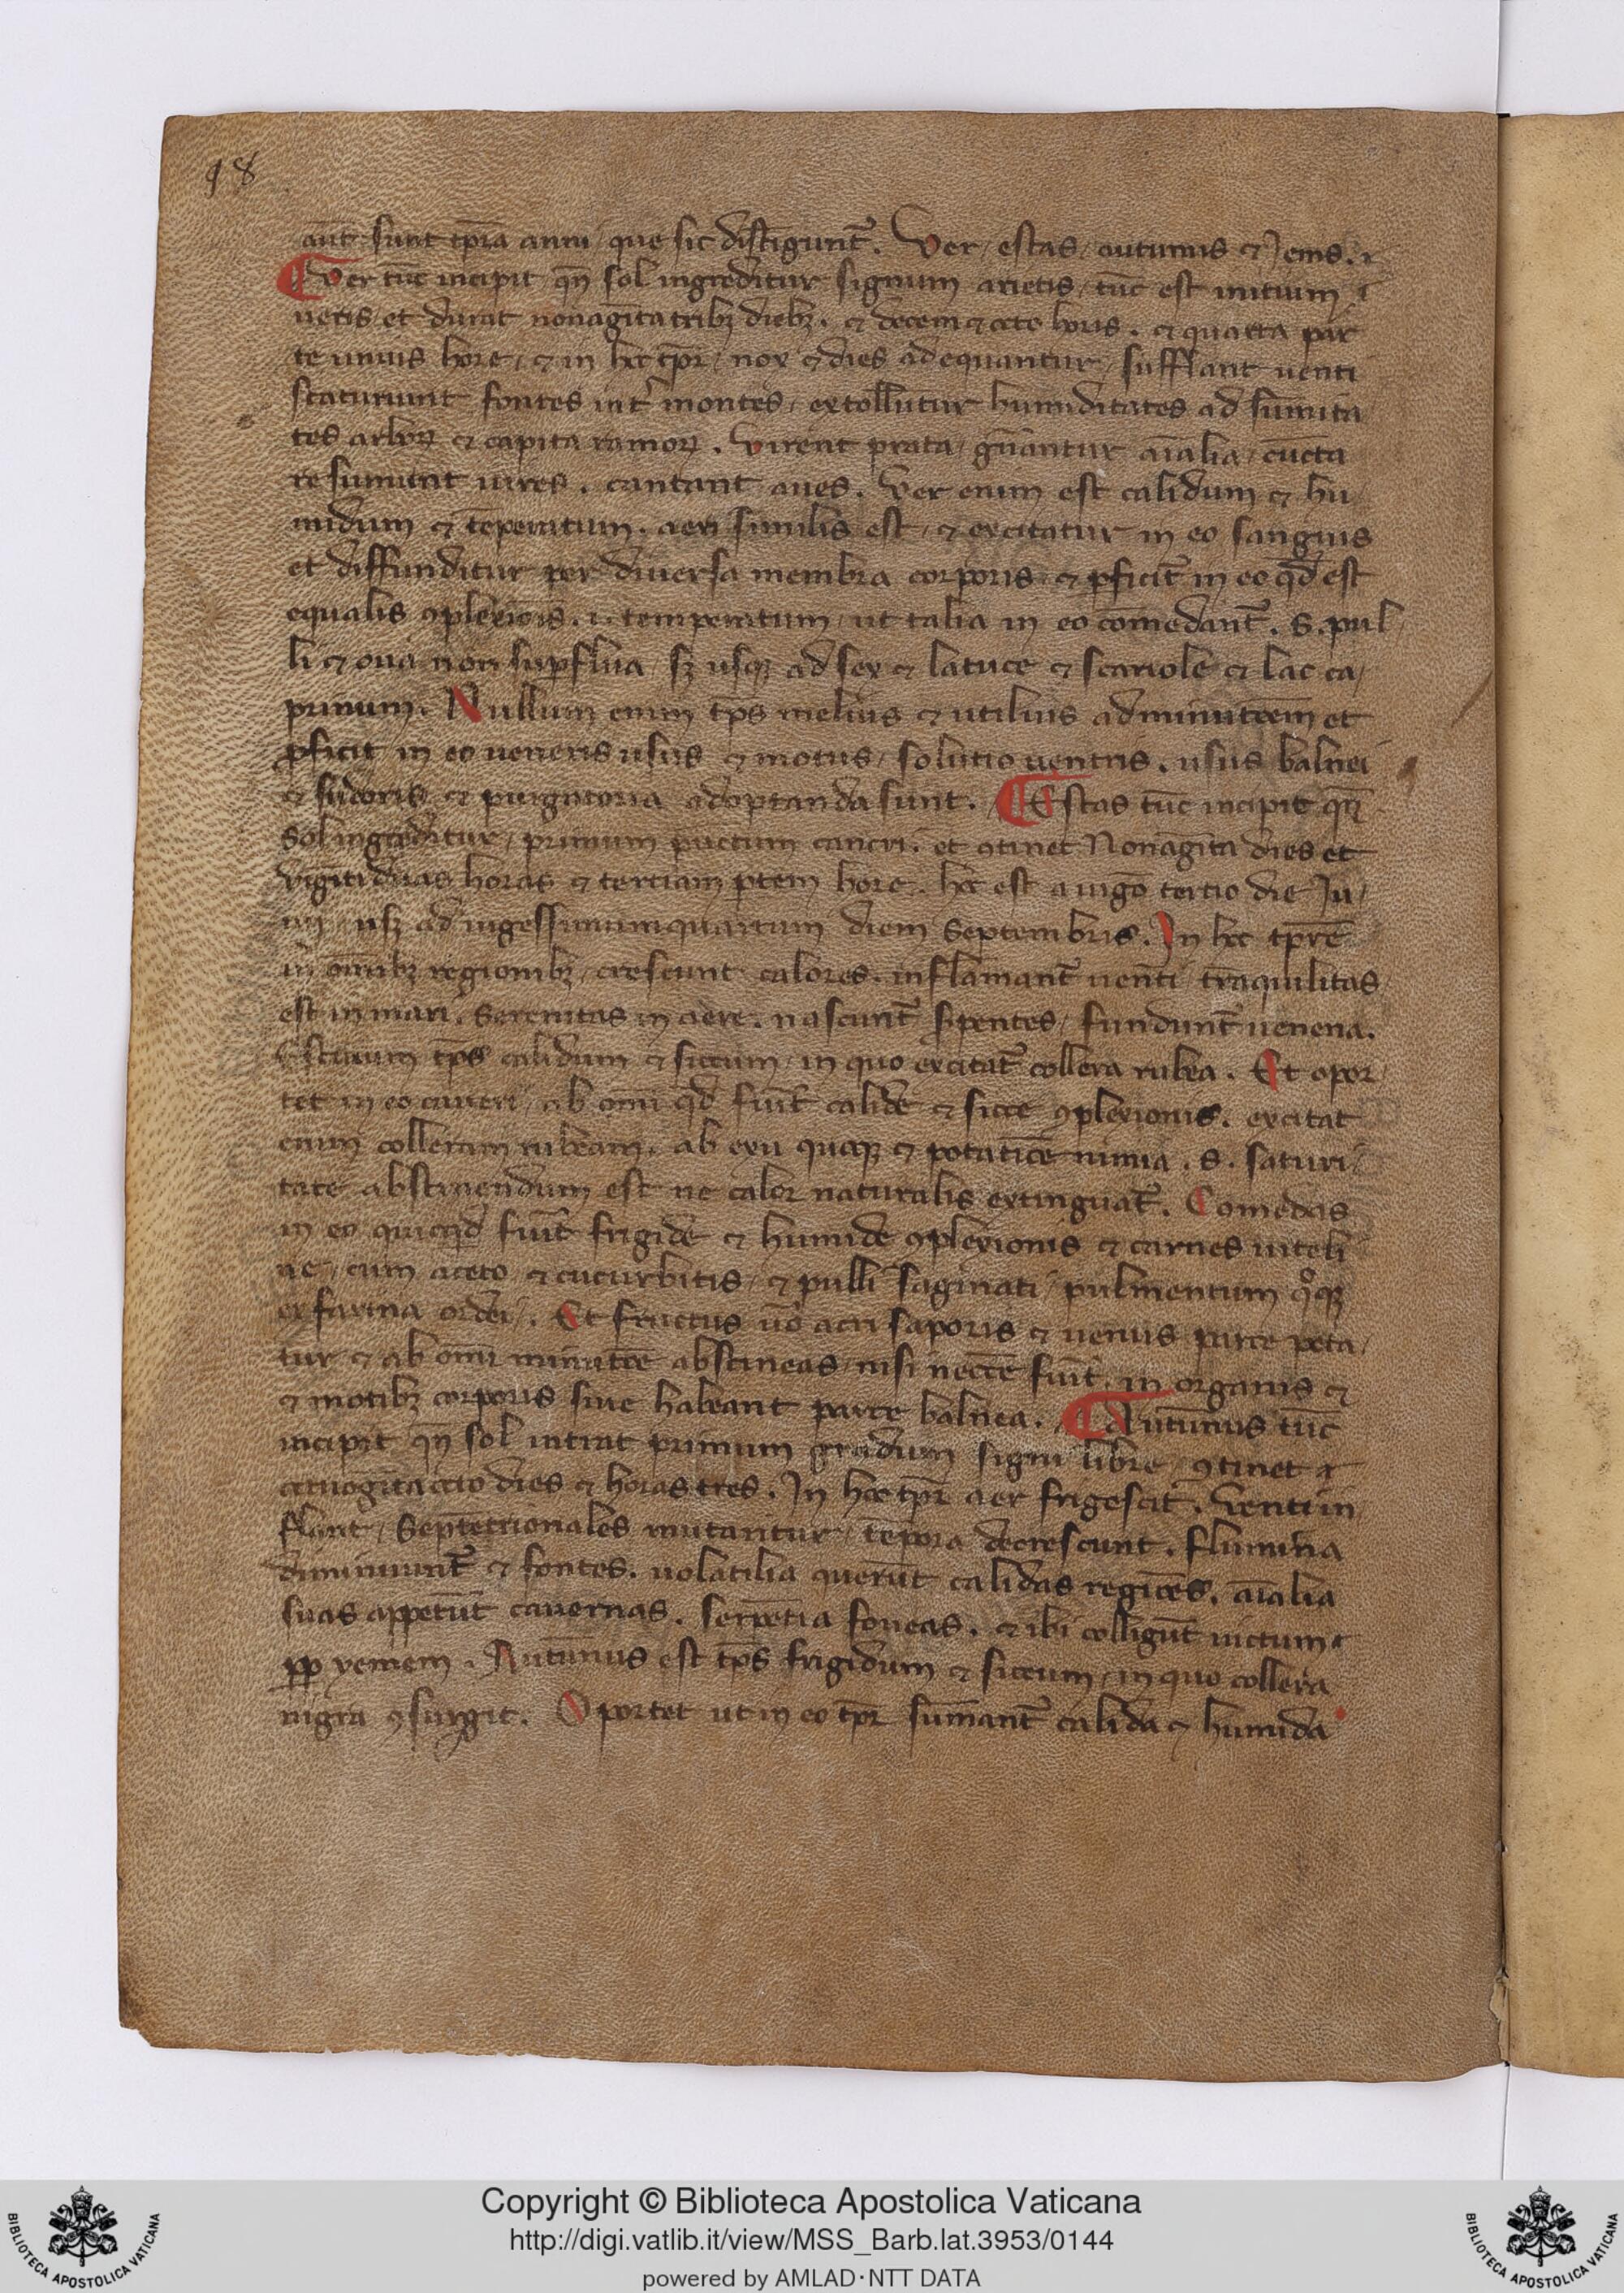 98
aūt sunt tp̄ra anni / que sic distīgunt᷑. Ver / estas / autumnus ⁊ Jems.
¶ Ver tūc incipit qn̄ sol ingreditur signum arietis / tūc est initium
ueris / et durat nonagīta tribꝫ diebꝫ. ⁊ decem ⁊ octo horis. ⁊ quarta par
te unius hore / ⁊ in hoc tp̄r / nox ⁊ dies adequantur / sufflant uenti
scaturiunt fontes int̓ montes / extollūtur humiditates ad sūmita
tes arboꝝ ⁊ capita ramoꝝ. Virent prata / gn̄antur aīalia / cūcta
resumunt uires. cantant aues. Ver enim est calidum ⁊ hu
midum ⁊ tēperatum. aeri similis est / ⁊ excitatur in eo sanguis
et diffunditur per diuersa membra corporis ⁊ ꝓficit in eo qd̄ est
equalis ꝯplexiōis. .i. temperatum / ut talia in eo comedant᷑. S. pul
li ⁊ oua non suꝑflua / sꝫ usqꝫ ad sex ⁊ latuce ⁊ scariole ⁊ lac ca
prinum. Nullum enim tp̄s melius ⁊ utilius ad minutōem et
ꝓficit in eo ueneris usus ⁊ motus / solutio uentris. usus balnei
⁊ sudoris ⁊ purgatoria adoptanda sunt. ¶ Estas tūc incipit qn̄
sol ingreditur / primum pūctum cancri. et ꝯtinet Nonagīta dies et
vigīti duas horas ⁊ terciam ꝑtem hore. hoc est a uigō tertio die Ju
nij / usqꝫ ad uigessimumquartum diem Septembris. In hoc tp̄re
in om̄ibꝫ regionibꝫ / crescunt calores. inflamant᷑ uenti / trāquilitas
est in mari. Serenitas in aere. nascunt᷑ s̓pentes / fundunt᷑ uenena.
Estiuum tp̄s calidum ⁊ siccum / in quo excitat᷑ collera rubea. Et opor
tet in eo caueri / ab omni qd̄ fuit̓ calide ⁊ sicce ꝯplexionis. excitat
enim colleram rubeam. ab exu quoqꝫ ⁊ potatiōe nimia. S. saturi
tate abstinendum est ne calor naturalis extinguat᷑. Comedas
in eo quicqd̄ fuit̓ frigide ⁊ humide ꝯplexionis ⁊ carnes uituli
ne / cum aceto ⁊ cucurbitis / ⁊ pulli saginati / pulmentum qͦqꝫ
ex farina ordei /. Et fructus ūo acri saporis ⁊ uenus parce peta
tur ⁊ ab om̄i minutōe abstineas / nisi necc̄e fuit̓. in organis ⁊
⁊ motibꝫ corporis siue habeant parce balnea. ¶ Autūnus tūc
incipit qn̄ sol intrat primum gradum signi libre / ꝯtinet
octuogīta octo dies ⁊ horas tres. In hoc tp̄r aer frigescit. Venti in
flant / Septētrionales mutantur / tēpora decrescunt. flumina
diminuunt᷑ ⁊ fontes. uolatilia querūt calidas regiōes. aīalia
suas appetūt cauernas. serpētia foueas. ⁊ ibi colligūt uictum
ꝓp yemem. Autūnus est tp̄s frigidum ⁊ siccum / in quo collera
nigra ꝯsurgit. Oportet ut in eo tp̄r sumant᷑ calida ⁊ humida
Copyright © Biblioteca Apostolica Vaticana
http://digi.vatlib.it/view/MSS_Barb.lat.3953/0144
powered by AMLAD·NTT DATA
BIBLIOTECA APOSTOLICA VATICANA
BIBLIOTECA APOSTOLICA VATICANA